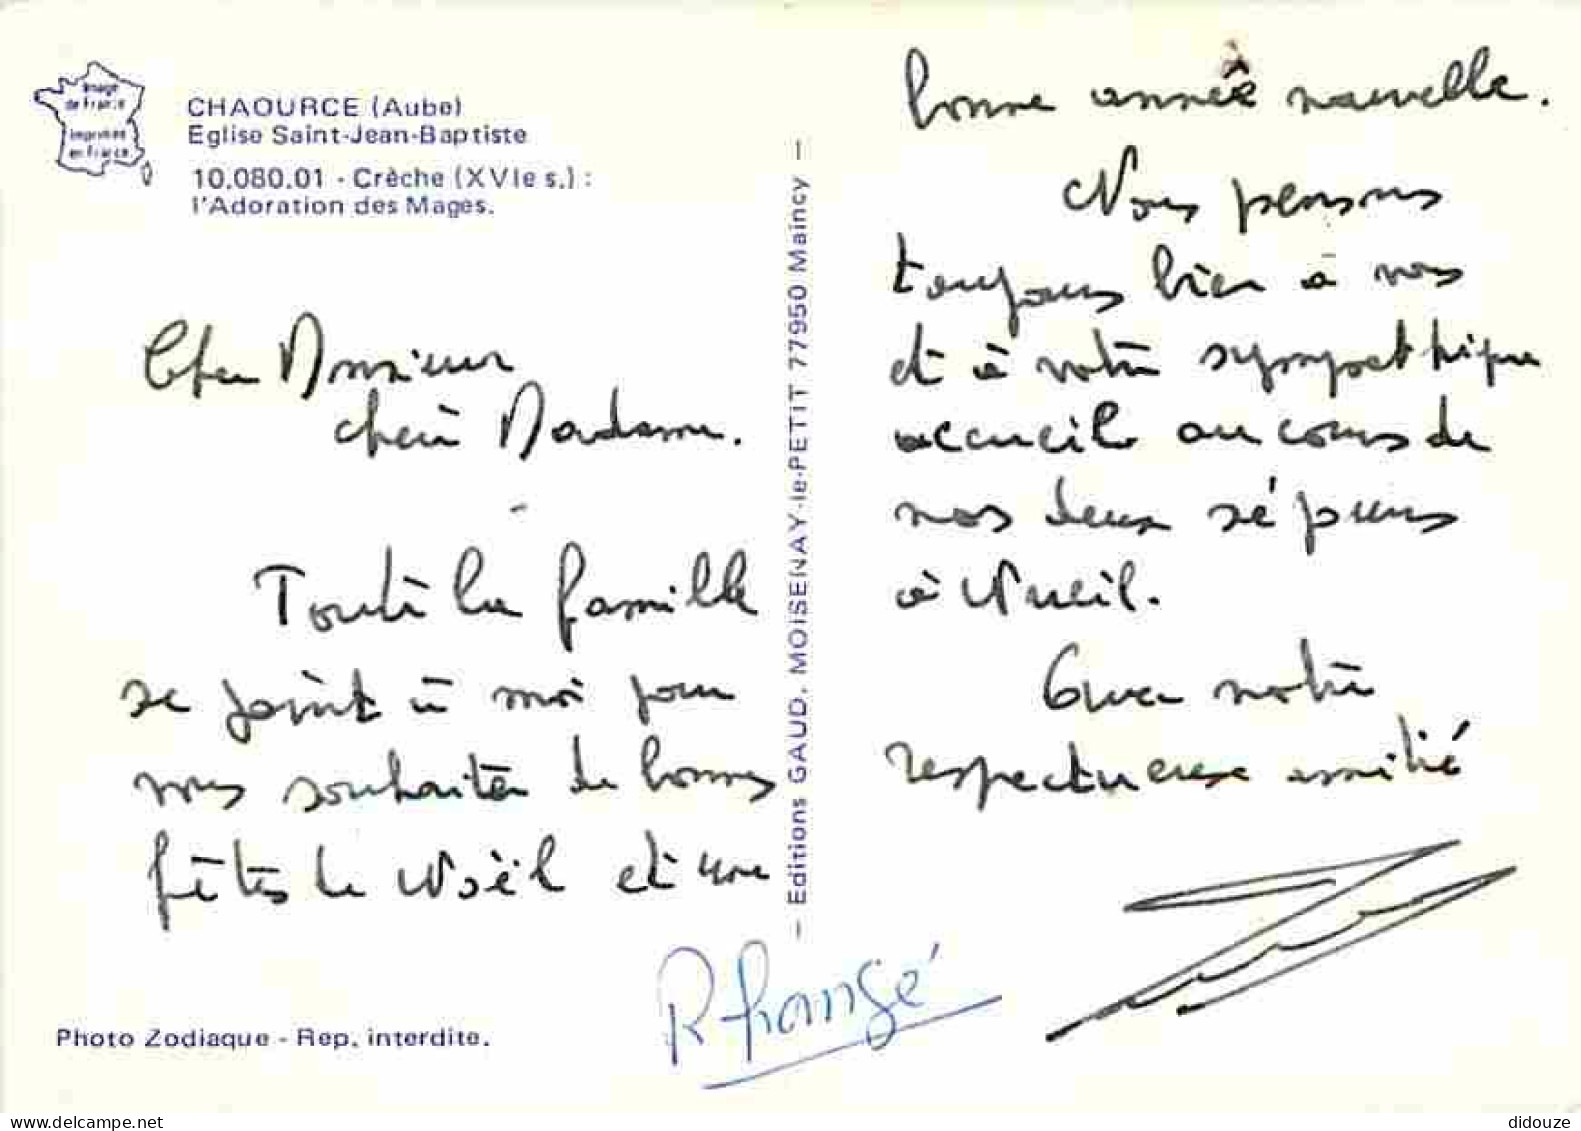 Image
de France
imprimée
en France
CHAOURCE (Aube)
Eglise Saint-Jean-Baptiste
10.080.01 - Crèche (XVIe s.) :
l'Adoration des Mages.
Cher Monsieur
chère Madame.
Toute la famille
se joint à moi pour
vous souhaiter de bonnes
fêtes de Noël et une
Photo Zodiaque - Rep. interdite.
— Editions GAUD, MOISENAY-le-PETIT 77950 Maincy —
bonne année nouvelle.
Nous pensons
toujours bien à vous
et à votre sympathique
accueil au cours de
nos deux séjours
à Nueil.
Avec notre
respectueuse amitié
didouze
delcampe.net